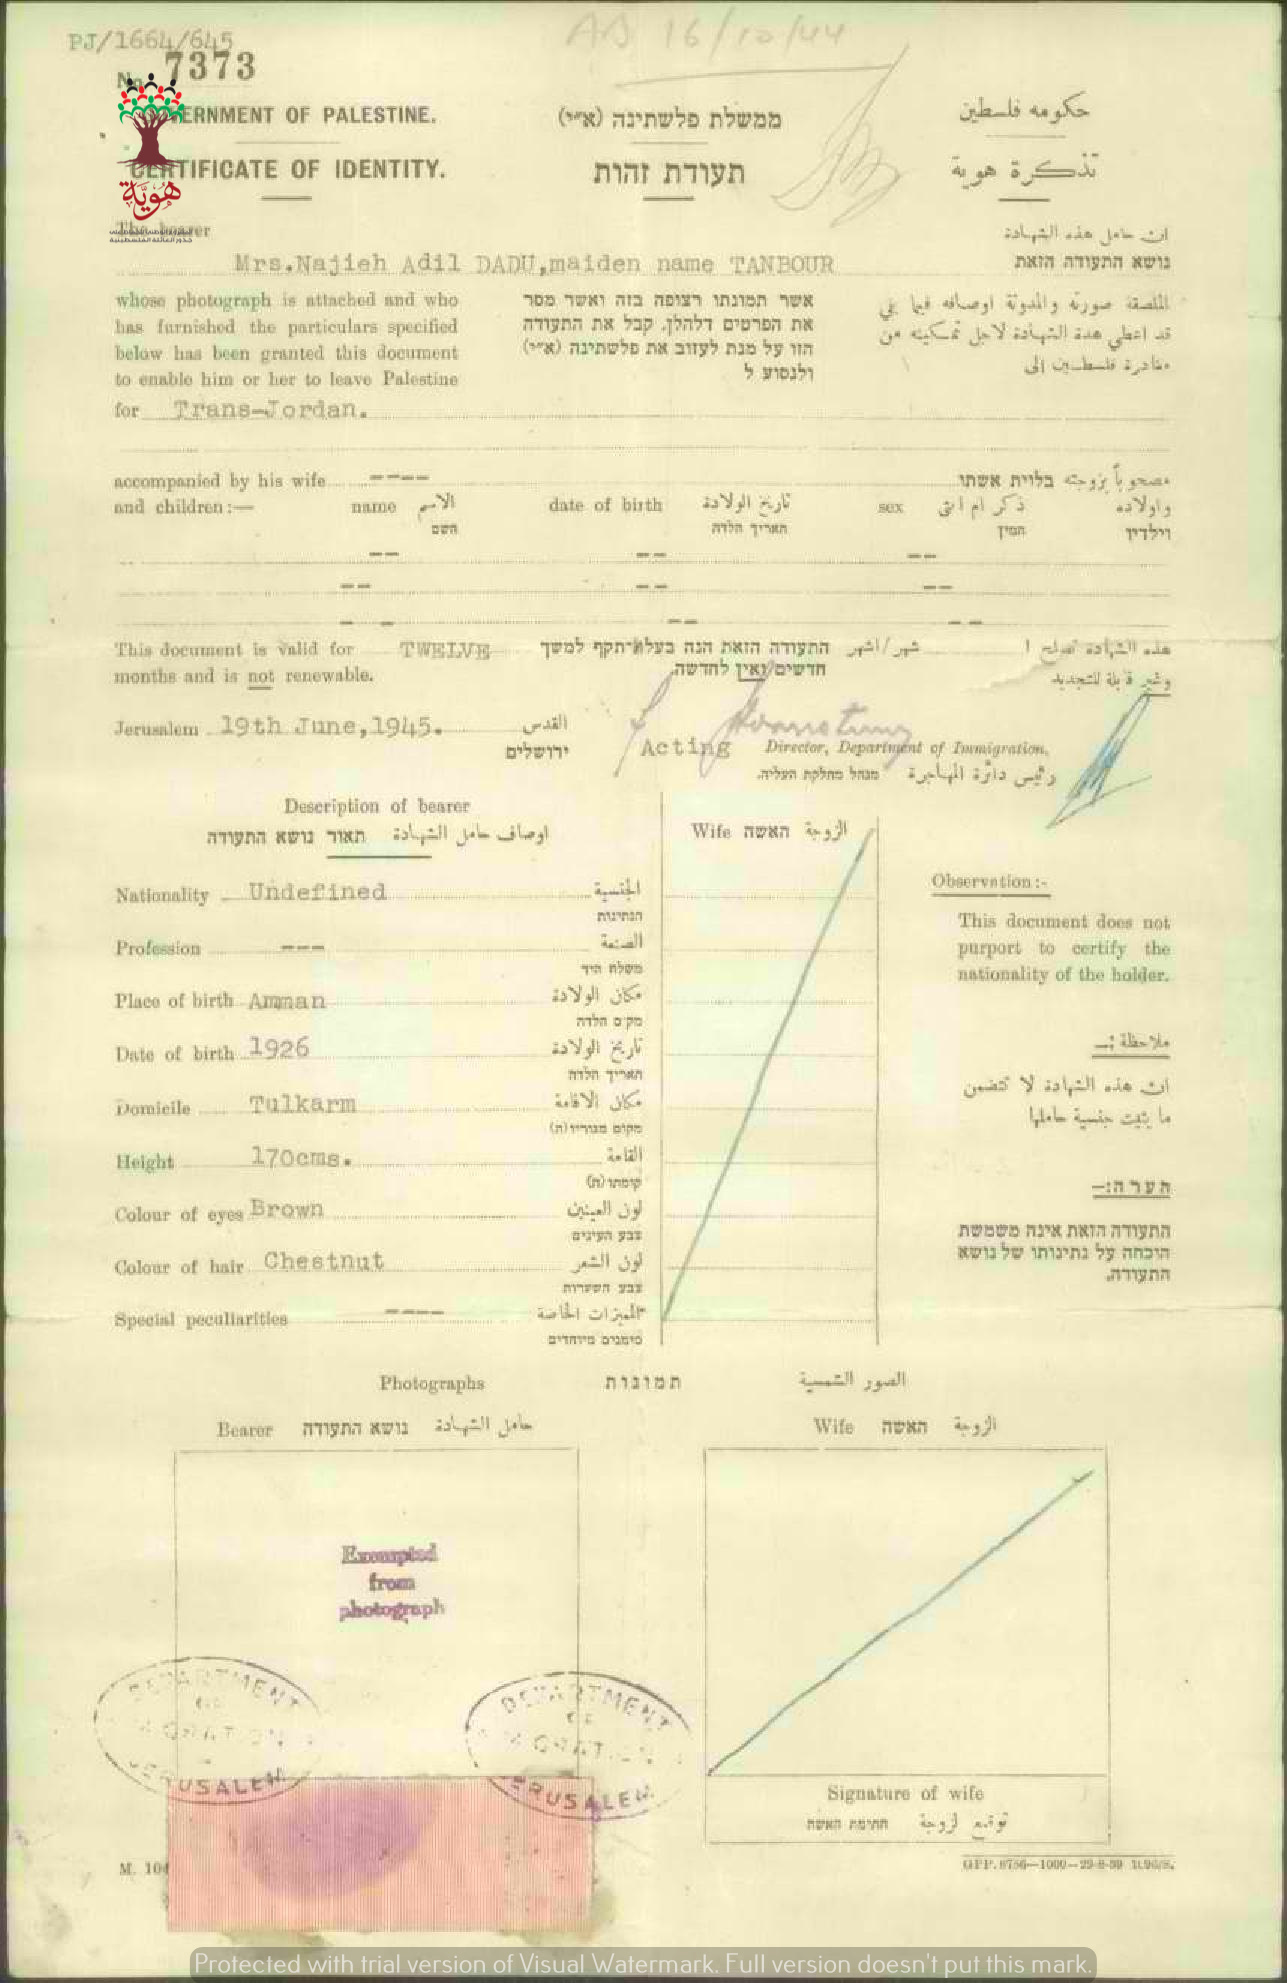 PJ/1664/645
16/10/44
No 7373
GOVERNMENT OF PALESTINE.
ממשלת פלשתינה (א״י)
حكومه فلسطين
CERTIFICATE OF IDENTITY.
תעודת זהות
تذكرة هوية
هويّة
The bearer
ان حامل هذه الشهادة
Mrs.Najieh Adil DADU,maiden name TANBOUR
נושא התעודה הזאת
whose photograph is attached and who
has furnished the particulars specified
below has been granted this document
to enable him or her to leave Palestine
for Trans-Jordan.
אשר תמונתו רצופה בזה ואשר מסר
את הפרטים דלהלן, קבל את התעודה
הזו על מנת לעזוב את פלשתינה (א״י)
ולנסוע ל
الملصقة صورته والمدونة اوصافه فيما يلي
قد اعطي هذه الشهادة لاجل تمكينه من
مغادرة فلسطين الى
accompanied by his wife ----
בלוית אשתו
مصحوباً بزوجته
and children:—
name الاسم
date of birth تاريخ الولادة
sex ذكر ام انثى
واولاده
השם
תאריך הלדה
המין
וילדיו
-- -- --
-- -- --
- - -- --
This document is valid for TWELVE
months and is not renewable.
התעודה הזאת הנה בעלת־תקף למשך
חדשים ואין לחדשה.
شهر/اشهر
هذه الشهادة تصلح ا
وغير قابلة للتجديد
Jerusalem 19th June,1945.
القدس
ירושלים
Acting Director, Department of Immigration.
מנהל מחלקת העליה.
رئيس دائرة المهاجرة
Description of bearer
תאור נושא התעודה اوصاف حامل الشهادة
Wife האשה الزوجة
Nationality Undefined الجنسية
הנתינות
Profession --- الصنعة
משלח היד
Place of birth Amman مكان الولادة
מקום הלדה
Date of birth 1926 تاريخ الولادة
תאריך הלדה
Domicile Tulkarm مكان الاقامة
מקום מגוריו(ה)
Height 170cms. القامة
קומתו(ה)
Colour of eyes Brown لون العينين
צבע העינים
Colour of hair Chestnut لون الشعر
צבע השערות
Special peculiarities ---- المميزات الخاصة
סימנים מיוחדים
Observation:-
This document does not
purport to certify the
nationality of the holder.
ملاحظة :—
ان هذه الشهادة لا تتضمن
ما يثبت جنسية حاملها
הערה:—
התעודה הזאת אינה משמשת
הוכחה על נתינותו של נושא
התעודה.
Photographs תמונות الصور الشمسية
Bearer נושא התעודה حامل الشهادة
Wife האשה الزوجة
Exempted
from
photograph
DEPARTMENT
OF
MIGRATION
JERUSALEM
DEPARTMENT
OF
MIGRATION
JERUSALEM
Signature of wife
חתימת האשה توقيع لزوجة
M. 104
GPP. 8756—1000—29-8-39
Protected with trial version of Visual Watermark. Full version doesn't put this mark.